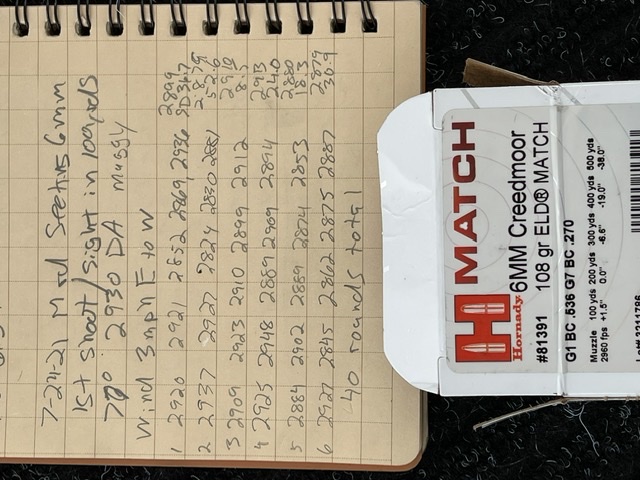 7-24-21
1st shoot/sight in 100yrds
70° 2930 DA muggy
Wind 3mph E to W
1 2920 2921 2852 2869 2936 2899 SD 36.7
2 2937 2927 2824 2830 2881
3 2909 2923 2910 2899 2912 2910 8.5
4 2925 2948 2889 2909 2894 2913 24.0
5 2884 2902 2889 2874 2853 2880 18.3
6 2927 2845 2862 2875 2887 2879 30.9
40 rounds total
H MATCH
Hornady 6MM Creedmoor
#81391 108 gr ELD® MATCH
G1 BC .536 G7 BC .270
Muzzle 100 yds 200 yds 300 yds 400 yds 500 yds
2960 fps +1.5" 0.0" -6.6" -19.0" -38.0"